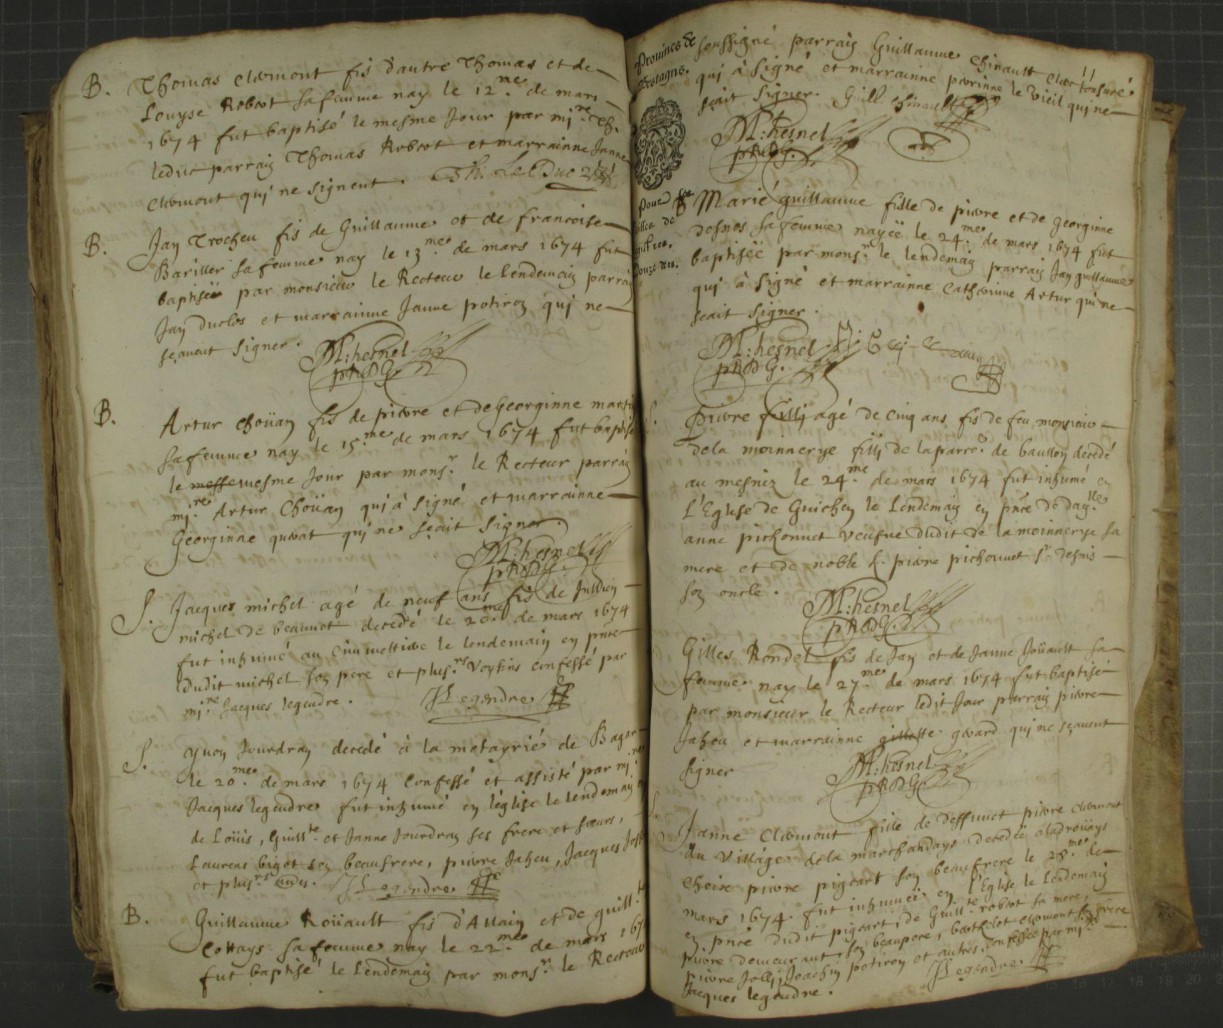 B. Thomas Clermont fis d'autre Thomas et de
Louyse Robert sa femme nay le 12.me de mars
1674 fut baptisé le mesme Jour par mi.re Th.
leduc parrain Thomas Robert et marrainne Janne
Clermont qui ne signent. Th. Le Duc
B. Jan Trocheu fis de Guillaume et de francoise
Bariller sa femme nay le 13.me de mars 1674 fut
baptisée par monsieur le Recteur le lendemain parrain
Jan duclos et marrainne Janne potiron qui ne
sçavent signer. M: hesnel
B. Artur Choüan fis de pierre et de Georginne martin
sa femme nay le 15.me de mars 1674 fut baptisé
le mesme Jour par mons.r le Recteur parrain
mi.re Artur Choüan qui à signé et marrainne
Georginne qui ne sçait signer
M: hesnel
S. Jacques michel agé de neuf ans fis de Jullien
michel de beauvot decedé le 20.me de mars 1674
fut inhumé au cimmettiere le lendemain en pnce
dudit michel son pere et plus.rs voysins confessé par
mi.re Jacques legendre. J Legendre
S. Yvon Jourdran decedé à la metayrié de
le 20.me de mars 1674 confessé et assisté par mi.re
Jacques legendre fut inhumé en l'église le lendemain
de Loüis, Guill.te et Janne Jourdran ses frere et sœurs,
Laurens bigot son beaufrere, pierre Jaheu, Jacques
et plus.rs J Legendre
B. Guillaume Roüault fis d'Allain et de guill.te
Cottays sa femme nay le 22.me de mars 167
fut baptisé le lendemain par mons.r le Recteur
Province de
Bretagne.
soussigné parrain Guillaume Thinault clerc tonsuré
qui à signé et marrainne perrinne le vieil qui ne
sçait signer. Guill Thinault
M: hesnel
Pour
Marie guillaume fille de pierre et de georginne
desnos sa femme nayée le 24.me de mars 1674 fut
baptisée par mons.r le lendemain parrain Jan guillaume
qui à signé et marrainne Catherinne Artur qui ne
sçait signer.
M: hesnel
S. Pierre filli agé de cinq ans fis de feu monsieur
de la moinnerye filli de la parr.e de baullon decedé
au mesniz le 24.me de mars 1674 fut inhumé en
L'Eglise de Guichen le Lendemain en pnce de dam.lle
anne pichonnet veufve dudit de la moinnerye sa
mere et de noble h. pierre pichonnet s.r desnis
son oncle. M: hesnel
Gilles Rondel fis de Jan et de Janne Joüault sa
femme nay le 27.me de mars 1674 fut baptisé
par monsieur le Recteur ledit Jour parrain pierre
Jaheu et marrainne gillette gerard qui ne sçavent
signer M: hesnel
S. Janne Clermont fille de deffunct pierre clermont
du village de la marchandays decedée
Choire pierre pigeart son beaufrere le 28.me de
mars 1674. fut inhumée en l'Eglise le lendemain
en pnce dudit pigeart, de Guill.te robert sa mere,
pierre demeurant son beaupere, berthelot clermont frere
pierre Jolli, Joachin potiron et autres, confessée par mi.re
Jacques legendre. J Legendre